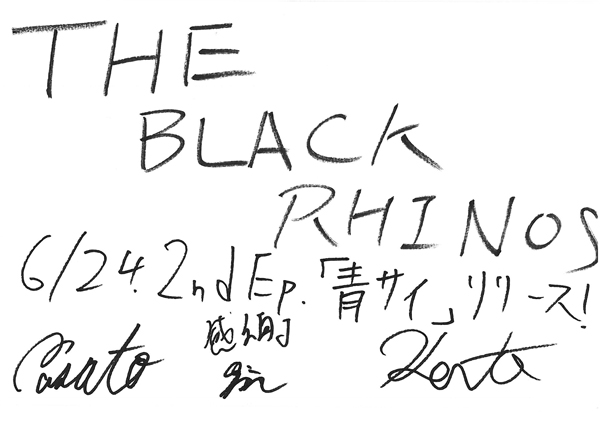 THE
BLACK
RHINOS
6/24. 2nd Ep.「青サイ」リリース!
Kenta